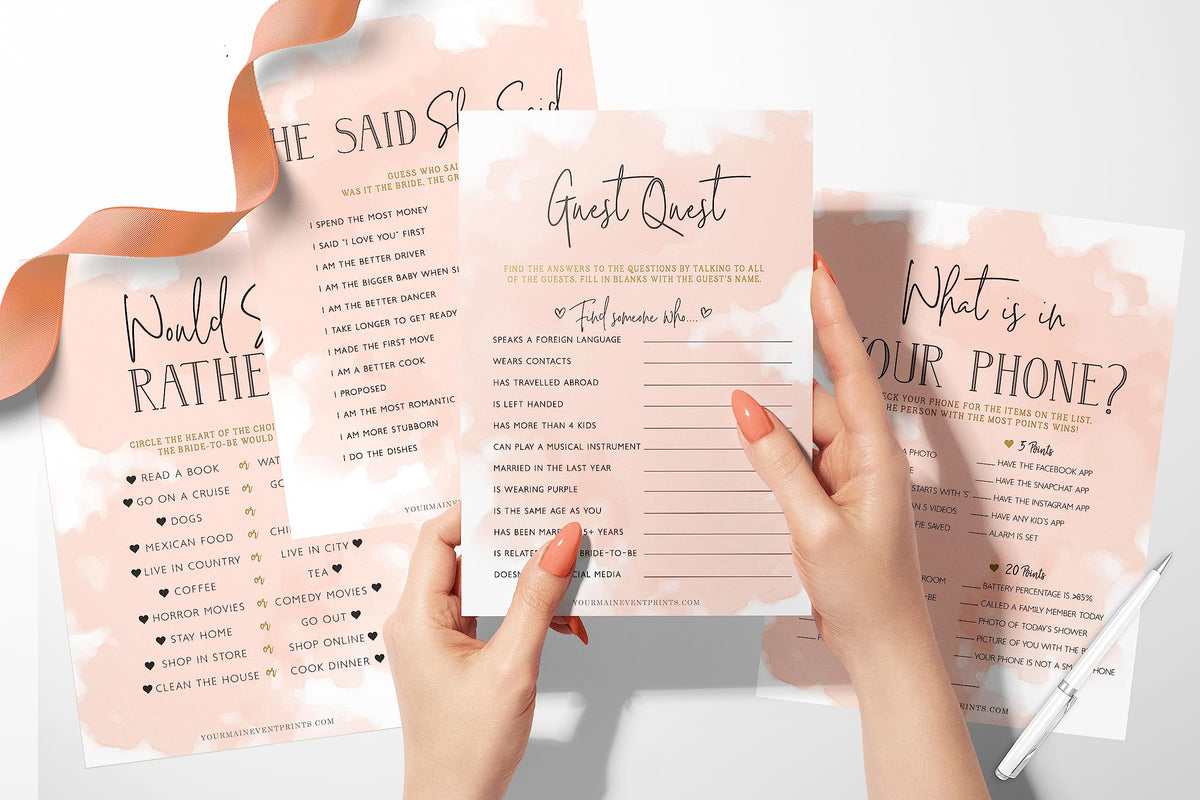 HE SAID She Said
GUESS WHO SAI
WAS IT THE BRIDE, THE GR
I SPEND THE MOST MONEY
I SAID "I LOVE YOU" FIRST
I AM THE BETTER DRIVER
I AM THE BIGGER BABY WHEN SI
I AM THE BETTER DANCER
I TAKE LONGER TO GET READY
I MADE THE FIRST MOVE
I AM A BETTER COOK
I PROPOSED
I AM THE MOST ROMANTIC
I AM MORE STUBBORN
I DO THE DISHES
YOURMAINEVE
Would S
RATHE
CIRCLE THE HEART OF THE CHOI
THE BRIDE-TO-BE WOULD
READ A BOOK or WAT
GO ON A CRUISE or GO
DOGS or
MEXICAN FOOD or CHI
LIVE IN COUNTRY or LIVE IN CITY
COFFEE or TEA
HORROR MOVIES or COMEDY MOVIES
STAY HOME or GO OUT
SHOP IN STORE or SHOP ONLINE
CLEAN THE HOUSE or COOK DINNER
YOURMAINEVENTPRINTS.COM
Guest Quest
FIND THE ANSWERS TO THE QUESTIONS BY TALKING TO ALL
OF THE GUESTS. FILL IN BLANKS WITH THE GUEST'S NAME.
Find someone who....
SPEAKS A FOREIGN LANGUAGE
WEARS CONTACTS
HAS TRAVELLED ABROAD
IS LEFT HANDED
HAS MORE THAN 4 KIDS
CAN PLAY A MUSICAL INSTRUMENT
MARRIED IN THE LAST YEAR
IS WEARING PURPLE
IS THE SAME AGE AS YOU
HAS BEEN MARR 5+ YEARS
IS RELATE BRIDE-TO-BE
DOESN CIAL MEDIA
YOURMAINEVENTPRINTS.COM
What is in
YOUR PHONE?
ECK YOUR PHONE FOR THE ITEMS ON THE LIST.
HE PERSON WITH THE MOST POINTS WINS!
5 Points
A PHOTO
HAVE THE FACEBOOK APP
HAVE THE SNAPCHAT APP
STARTS WITH 'S'
HAVE THE INSTAGRAM APP
AN 5 VIDEOS
HAVE ANY KID'S APP
FIE SAVED
ALARM IS SET
20 Points
ROOM
BATTERY PERCENTAGE IS >85%
-BE
CALLED A FAMILY MEMBER TODAY
PHOTO OF TODAY'S SHOWER
PICTURE OF YOU WITH THE B
YOUR PHONE IS NOT A SM PHONE
PRINTS.COM